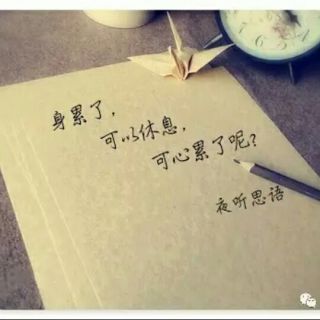 身累了，
可以休息，
可心累了呢？
夜听思语